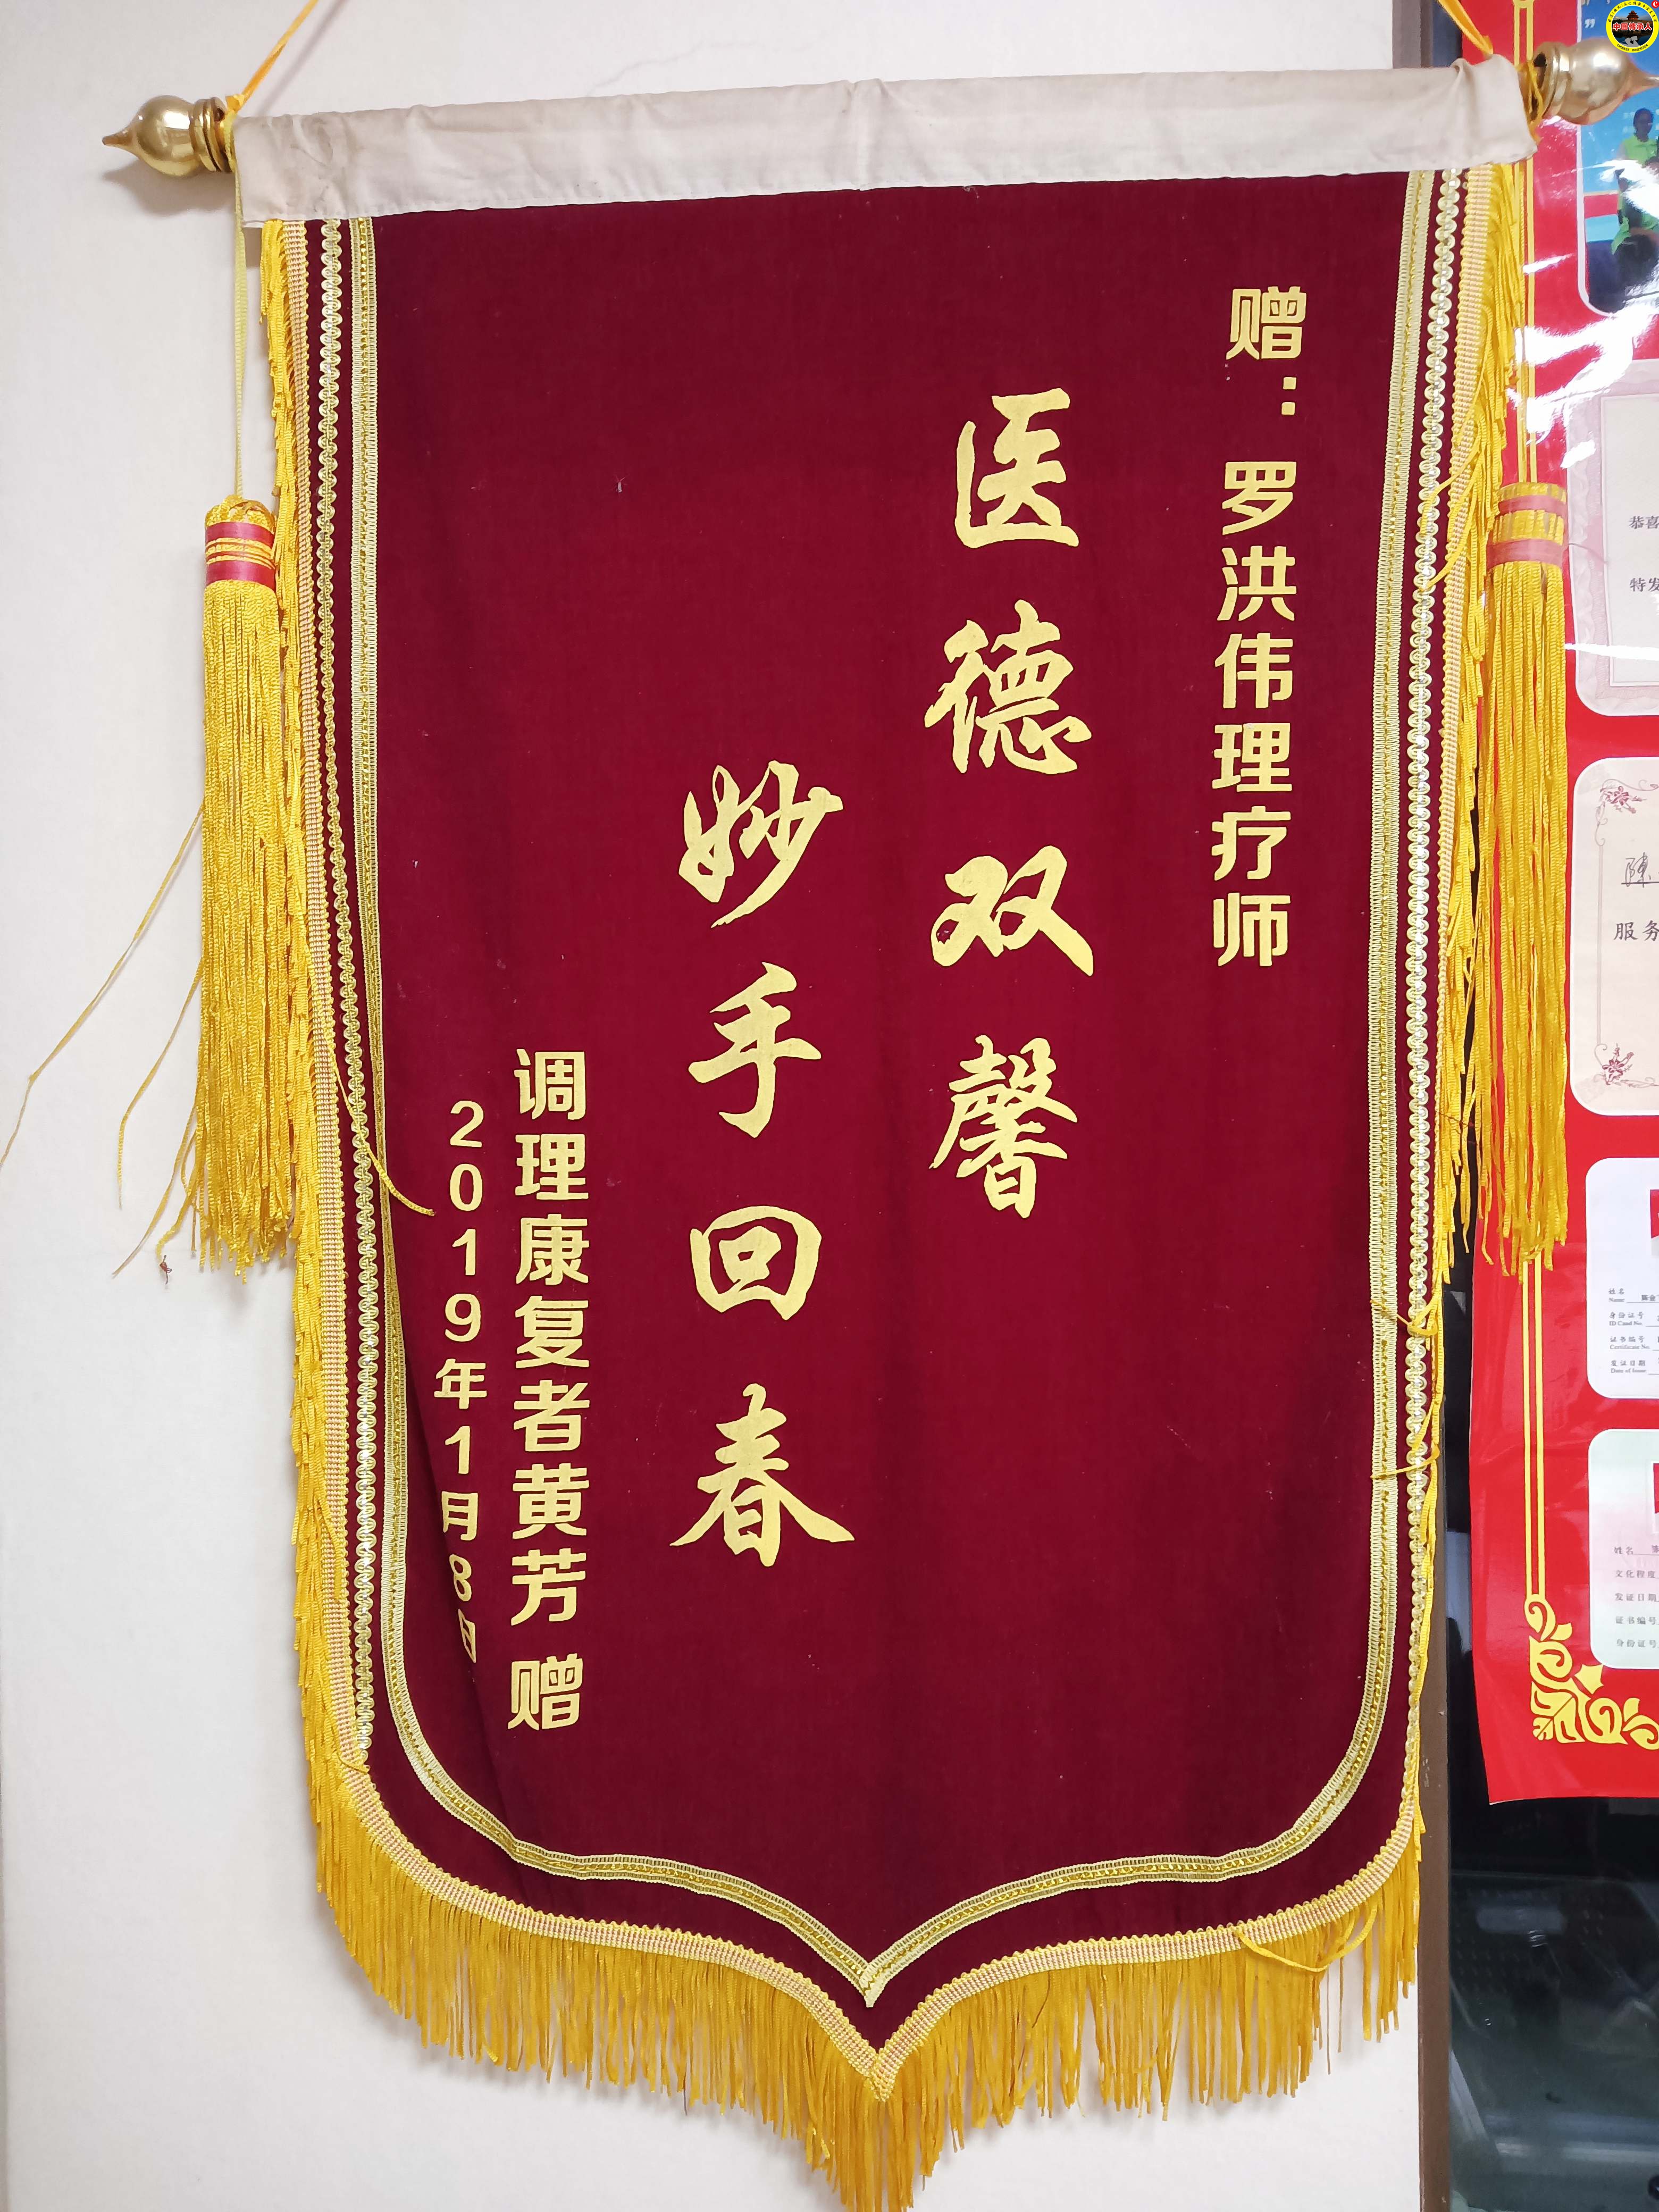 赠：罗洪伟理疗师
医德双馨
妙手回春
调理康复者黄芳 赠
2019年1月8日
中国传承人
恭喜
特发
陳
服务
姓名
Name
身份证号
ID Card No.
证书编号
Certificate No.
发证日期
Date of Issue
姓名
文化程度
发证日期
证书编号
身份证号